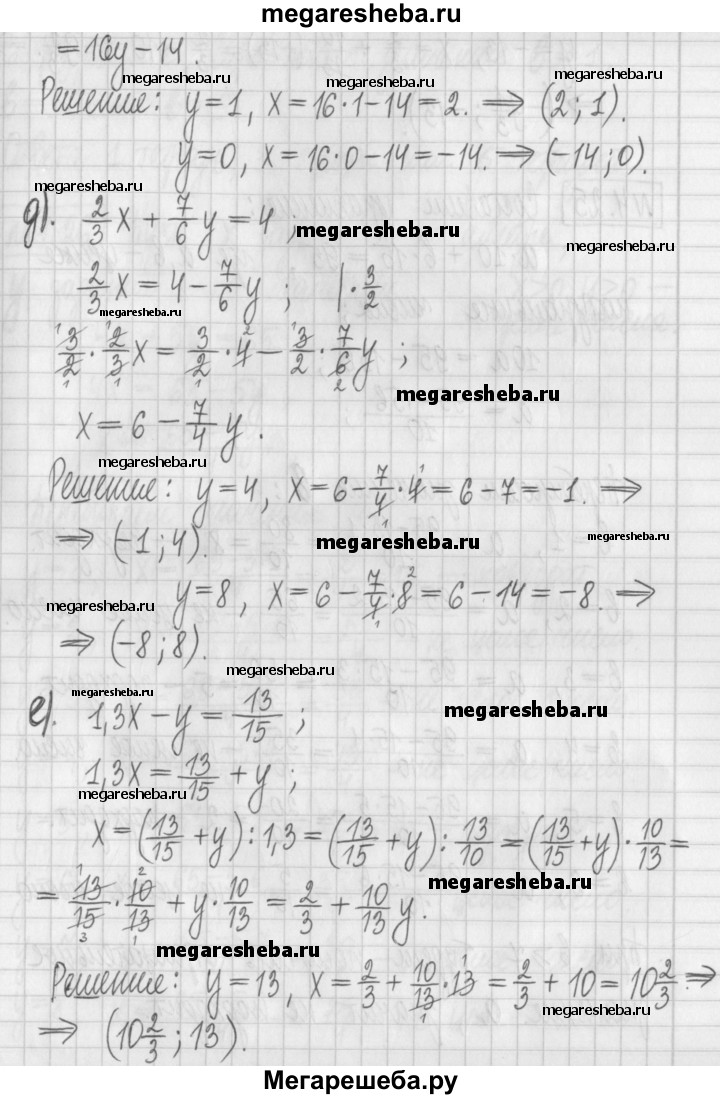 megaresheba.ru
= 16y − 14.
megaresheba.ru megaresheba.ru megaresheba.ru
Решение: y = 1, x = 16·1 − 14 = 2. ⟹ (2; 1).
y = 0, x = 16·0 − 14 = −14. ⟹ (−14; 0).
megaresheba.ru
д). 2/3 x + 7/6 y = 4;
megaresheba.ru
megaresheba.ru
2/3 x = 4 − 7/6 y; | · 3/2
megaresheba.ru
3/2 · 2/3 x = 3/2 · 4 − 3/2 · 7/6 y;
megaresheba.ru
x = 6 − 7/4 y.
megaresheba.ru
Решение: y = 4, x = 6 − 7/4 · 4 = 6 − 7 = −1. ⟹
⟹ (−1; 4).
megaresheba.ru megaresheba.ru
y = 8, x = 6 − 7/4 · 8 = 6 − 14 = −8. ⟹
megaresheba.ru
⟹ (−8; 8).
megaresheba.ru
megaresheba.ru
е). 1,3x − y = 13/15;
megaresheba.ru
1,3x = 13/15 + y;
megaresheba.ru
x = (13/15 + y) : 1,3 = (13/15 + y) : 13/10 = (13/15 + y) · 10/13 =
megaresheba.ru
= 13/15 · 10/13 + y · 10/13 = 2/3 + 10/13 y.
megaresheba.ru
Решение: y = 13, x = 2/3 + 10/13 · 13 = 2/3 + 10 = 10 2/3. ⟹
megaresheba.ru
⟹ (10 2/3; 13).
Мегарешеба.ру